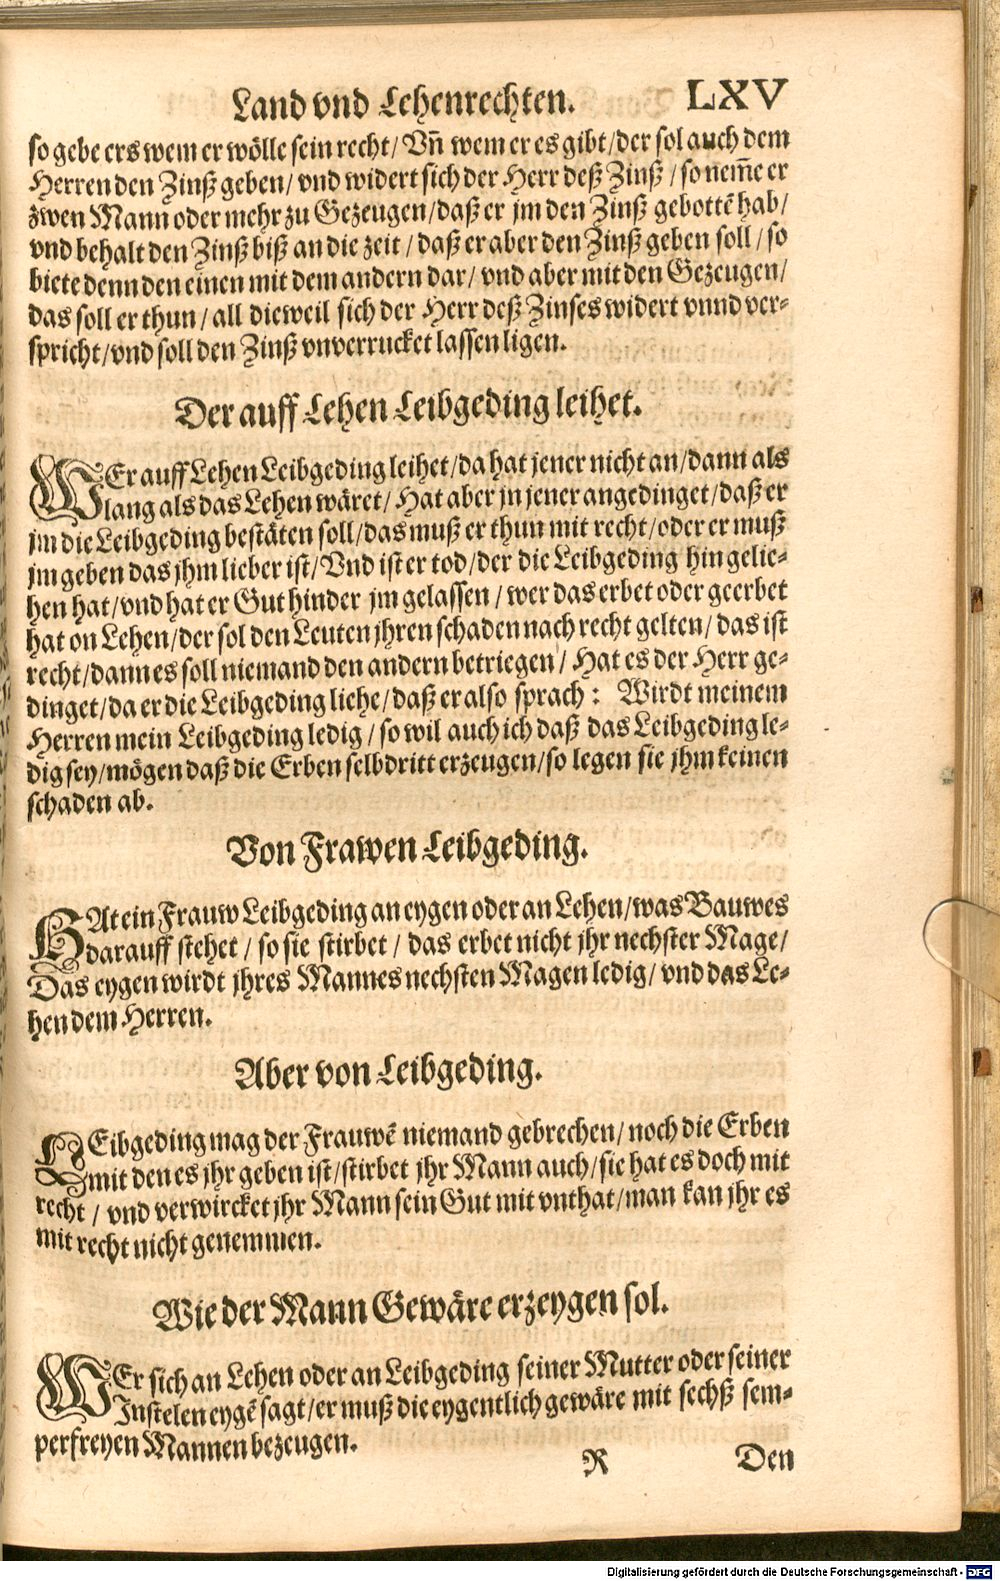 Land vnd Lehenrechten. LXV
so gebe ers wem er wölle sein recht/ Vñ wem er es gibt/der sol auch dem
Herren den Zinß geben/ vnd widert sich der Herr deß Zinß /so nem̃e er
zwen Mann oder mehr zu Gezeugen/daß er jm den Zinß gebottẽ hab/
vnd behalt den Zinß biß an die zeit / daß er aber den Zinß geben soll / so
biete denn den einen mit dem andern dar/ vnd aber mit den Gezeugen/
das soll er thun / all dieweil sich der Herr deß Zinses widert vnnd ver-
spricht/vnd soll den Zinß vnverrucket lassen ligen.
Der auff Lehen Leibgeding leihet.
WEr auff Lehen Leibgeding leihet/da hat jener nicht an/dann als
lang als das Lehen wäret/ Hat aber jn jener angedinget/daß er
jm die Leibgeding bestäten soll/das muß er thun mit recht/oder er muß
jm geben das jhm lieber ist/Vnd ist er tod/der die Leibgeding hin gelie-
hen hat/vnd hat er Gut hinder jm gelassen / wer das erbet oder geerbet
hat on Lehen/der sol den Leuten jhren schaden nach recht gelten/ das ist
recht/dann es soll niemand den andern betriegen/ Hat es der Herr ge-
dinget/da er die Leibgeding liehe/daß er also sprach: Wirdt meinem
Herren mein Leibgeding ledig / so wil auch ich daß das Leibgeding le-
dig sey/mögen daß die Erben selbdritt erzeugen/so legen sie jhm keinen
schaden ab.
Von Frawen Leibgeding.
HAt ein Frauw Leibgeding an eygen oder an Lehen/was Bauwes
darauff stehet / so sie stirbet / das erbet nicht jhr nechster Mage/
Das eygen wirdt jhres Mannes nechsten Magen ledig/ vnd das Le-
hen dem Herren.
Aber von Leibgeding.
LEibgeding mag der Frauwẽ niemand gebrechen/ noch die Erben
mit den es jhr geben ist/stirbet jhr Mann auch/sie hat es doch mit
recht / vnd verwircket jhr Mann sein Gut mit vnthat/man kan jhr es
mit recht nicht genemmen.
Wie der Mann Gewäre erzeygen sol.
WEr sich an Lehen oder an Leibgeding seiner Mutter oder seiner
Instelen eygẽ sagt/er muß die eygentlich gewäre mit sechß sem-
perfreyen Mannen bezeugen.
R Den
Digitalisierung gefördert durch die Deutsche Forschungsgemeinschaft - DFG